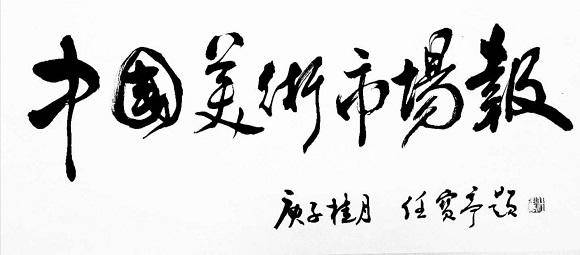 中国美術市場報
庚子桂月 任寶亭題